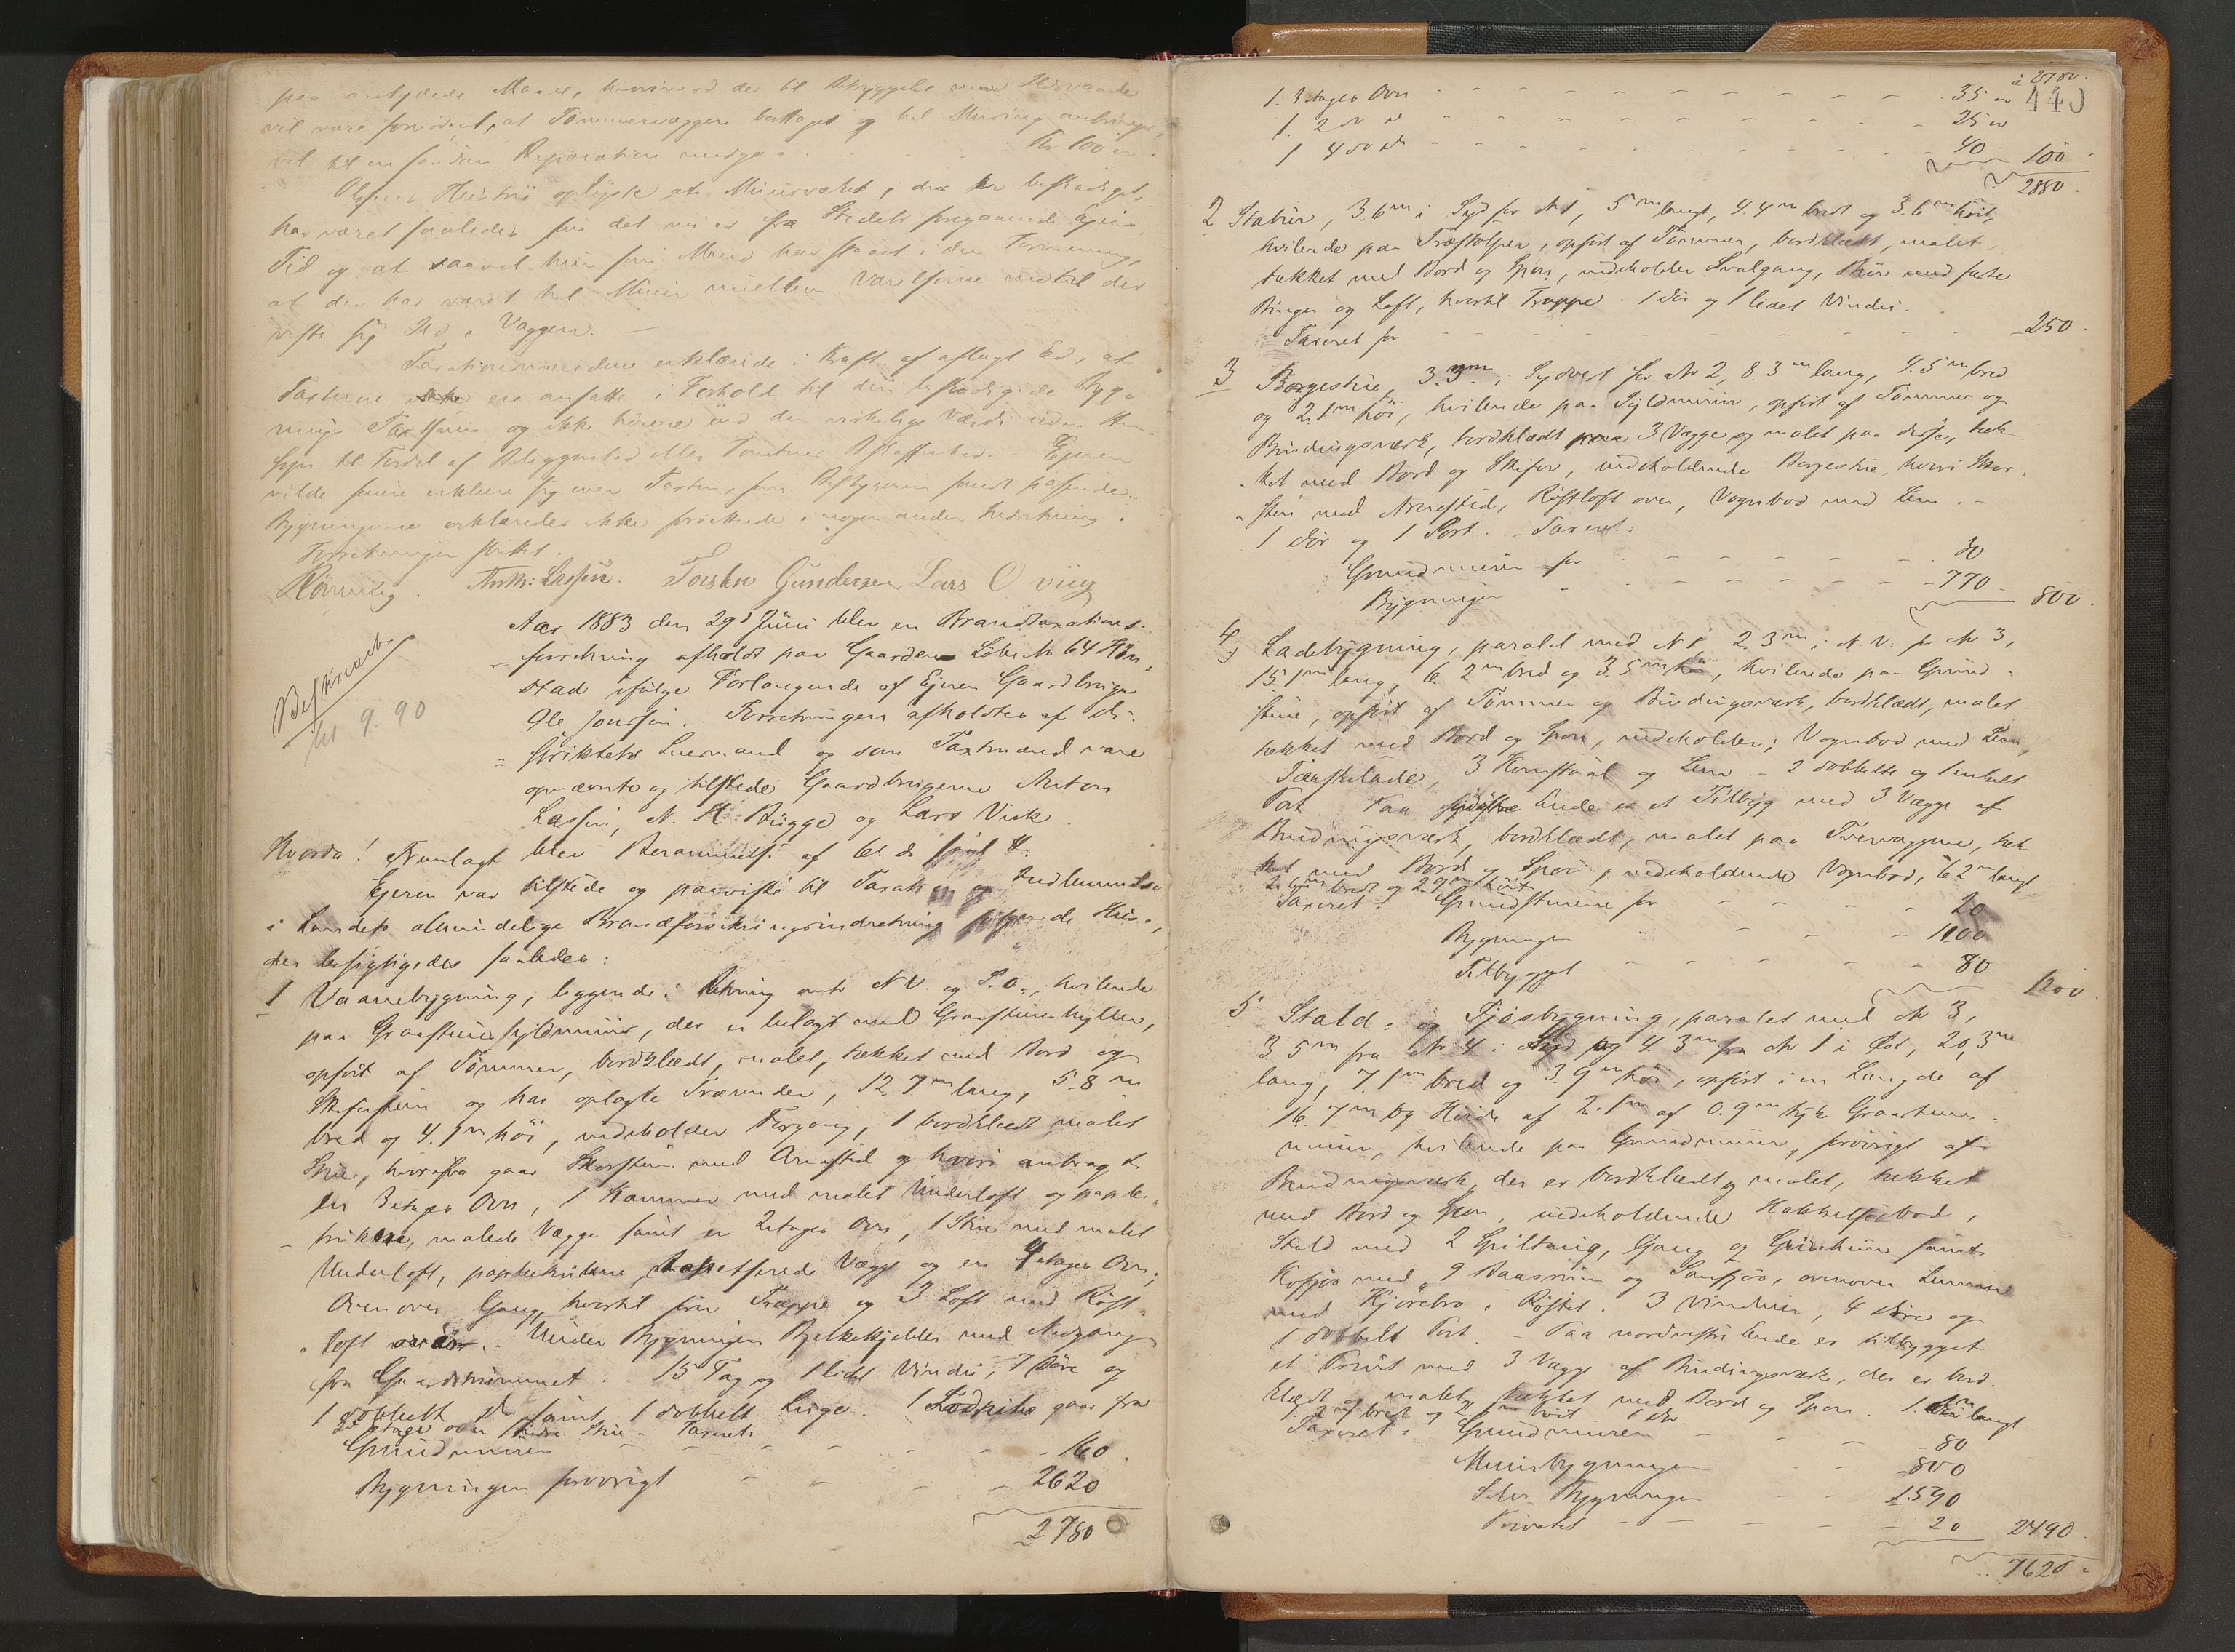 paa antydede Maade, hvorimod de til Bryggehus med Ildsvaade
vil være fornødent, at Tømmervæggen borttages og hel Muring anbringes,
vil til en saadan Reparation medgaa Kr 100
Olsens Hustru oplyste at Muurværket, der er beskadiget,
har været saaledes som det nu er fra Stedets foregaaende Eiers
Tid og at saavel hun som Mand har staaet i den Formening,
at der har været hel Muur mellem Værelserne indtil der
viste sig Ild i Væggen. —
Taxationsmændene erklærede i Kraft af aflagt Ed, at
Taxterne ere ansatte i Forhold til den beskadigede Byg-
nings Taxtsum og ikke høiere end den virkelige Værdi uden Hen-
syn til Fordel af Beliggenhed eller Tomtens Beskaffenhed. Eieren
vilde senere erklære sig over Taxten, som Bestyreren fandt passende.
Bygningerne erklæredes ikke forsikrede i nogen anden Indretning.
Forretningen sluttet.
Rømmig. Anth: Lassen. Torsten Gundersen Lars O viig
Beskrevet
9. 90
Aar 1883 den 29d Juni blev en Brandtaxations-
forretning afholdt paa Gaarden Løbe No 64
stad ifølge Forlangende af Eieren Gaardbruger
Ole Jonsen. - Forretningen afholdtes af Di-
striktets Lensmand og som Taxtmænd vare
opnævnte og tilstede Gaardbrugerne Anton
Lassen, N. H. Bugge og Lars Viik.
Hvorda! Fremlagt blev Berammelse af 61. ds
Eieren var tilstede og paaviste til Taxation og Indlemmelse
i Landets almindelige Brandforsikringsindretning følgende Huse,
der besigtigedes saaledes:
1 Vaanebygning, liggende i Retning mod N V. og S. O., hvilende
paa Graasteinssyldmuur, der er belagt med Graasteinshyller,
opført af Tømmer, bordklædt, malet, tækket med Bord og
Skifersten og har oplagte Trærender, 12.7m lang, 5.8m
bred og 4.1m høi, indeholder Forgang, 1 bordklædt malet
Stue, hvorfra gaar Skorsten med Arnested og hvori anbragt
en 3etages Ovn, 1 Kammer med malet Underloft og papbe-
trukne, malede Vægge samt en 2etages Ovn, 1 Stue med malet
Underloft, papbetrukne tapetserede Vægge og en 4etages Ovn,
Ovenover Gang, hvortil fører Trappe og 3 Loft med Røst-
loft over. Under Bygningen Bjelkekjelder med Nedgang
fra Gaardsrummet. 15 Fag og 1 lidet Vindu, 7 Døre og
1 dobbelt do samt 1 dobbelt Luge. 1 Lodpibe gaar fra
2 etage over Stue. Taxeret:
Grundmuren - - - 160.
Bygningen forøvrigt - - - 2620
2780
2780.
440
1. 3etages Ovn - - - 35 "
1. 2 do do - - - 25 "
1 4 do do - - - 40 100
2880.
2 Stabur, 3.6m i Syd for No 1, 5m langt, 4.4m bredt og 3.6m høit,
hvilende paa Træstolper, opført af Tømmer, bordklædt, malet,
tækket med Bord og Spon, indeholder Svalgang, Bur med faste
Binger og Loft, hvortil Trappe. 1 Dør og 1 lidet Vindu.
Taxeret for - - - 250.
3 Borgestue, 3.3m i Sydvest for No 2, 8.3m lang, 4.5m bred
og 2.1m høi, hvilende paa Syldmuur, opført af Tømmer og
Bindingsværk, bordklædt paa 3 Vægge og malet paa disse, tæk-
ket med Bord og Skifer, indeholdende Borgestue, hvori Skor-
sten med Arnested, Røstloft over, Vognbod med Lem. -
1 Dør og 1 Port. - Taxeret:
Grundmuren for - - - 30
Bygningen - - - 770 800.
4 Ladebygning, paralel med No 1 2.3m i N. V. for No 3,
15.1m lang, 6.2m bred og 3.5m høi, hvilende paa Grund-
stene, opført af Tømmer og Bindingsværk, bordklædt, malet
tækket med Bord og Spon, indeholder: Vognbod med Lem,
Tærskelade, 3 Kornstaal og Lem. - 2 dobbelte og 1 enkelt
Port. Paa sydøstre Ende er et Tilbyg med 3 Vægge af
Bindingsværk, bordklædt, malet paa Tvervæggene, tæk-
ket med Bord og Spon, indeholdende Vognbod, 6.2m langt
2.6m bredt og 2.9m høit
Taxeret: Grundstenene for - - - 20
Bygningen - - - 1100
Tilbygget - - - 80 1200.
5 Stald- og Fjøsbygning, paralel med No 3,
3.5m fra No 4 i Syd og 4.3m fra No 1 i Øst, 20,3m
lang, 7.1m bred og 3.9m høi, opført i en Længde af
16.7m og Høide af 2.1m af 0.9m tyk Graasteins-
muur, hvilende paa Grundmuur, forøvrigt af
Bindingsværk, der er bordklædt og malet, tækket
med Bord og Spon, indeholdende Hakkelsebod,
Stald med 2 Spiltaug, Gang og samt
Kofjøs med 9 Baasrum og Saufjøs, ovenover Lemmer
med Kjørebro i Røstet. 3 Vinduer, 4 Døre og
1 dobbelt Port. - Paa nordvestre Ende er tilbygget
et Privet med 3 Vægge af Bindingsværk, der er bord-
klædt og malet, tækket med Bord og Spon. 1. langt
1.2m bredt og 2.1m høit 1 Dør.
Taxeret: Grundmuren - - - 80
Muurbygningen - - - 800
Selve Bygningen - - - 1590
Privetet - - - 20 2490.
7620.